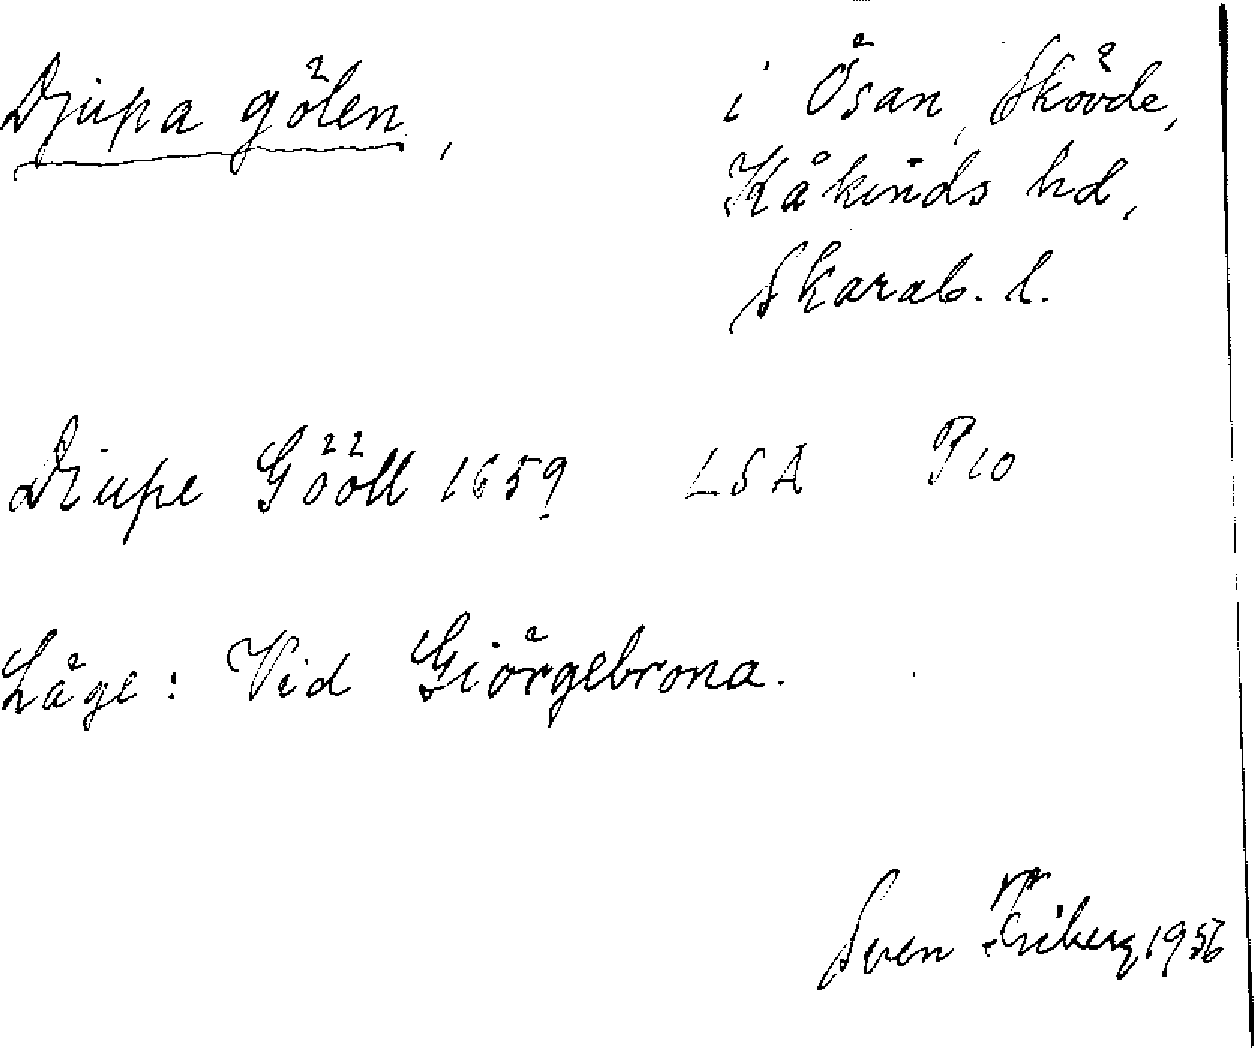 Djupa gölen, i Ösan, Skövde,
Kåkinds hd,
Skarab. l.
Diupe Gööll 1659 LSA P10
Läge: Vid Giörgebrona.
Sven Friberg 1956